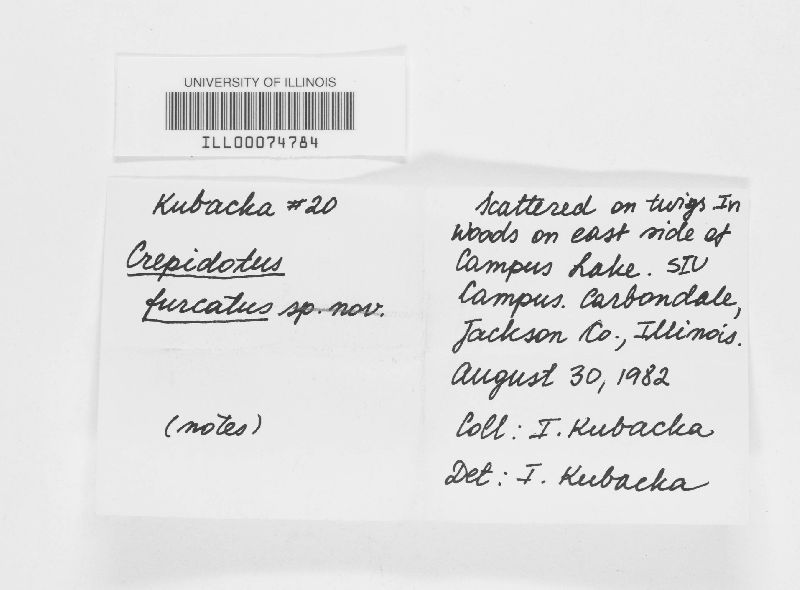 UNIVERSITY OF ILLINOIS
ILL00074784
Kubacka #20
Crepidotus
furcatus sp. nov.
(notes)
Scattered on twigs In
Woods on east side of
Campus Lake. SIU
Campus. Carbondale,
Jackson Co., Illinois.
August 30, 1982
Coll: I. Kubacka
Det: I. Kubacka